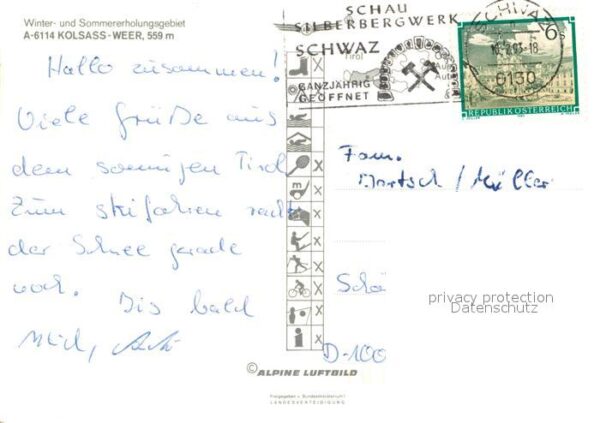 Winter- und Sommererholungsgebiet
A-6114 KOLSASS-WEER, 559 m
Hallo zusammen!
Viele Grüße aus
dem sonnigen Tirol
Zum skifahren reicht
der Schnee gerade
noch. Bis bald
SCHAU
SILBERBERGWERK
SCHWAZ
GANZJÄHRIG
GEÖFFNET
SCHWAZ
6130
6s
REPUBLIK ÖSTERREICH
Tirol
X
X
X
X
X
X
X
X
Fam.
Bartsch / Müller
Schö
privacy protection
Datenschutz
D-100
© ALPINE LUFTBILD
Freigegeben v. Bundesministerium f.
LANDESVERTEIDIGUNG